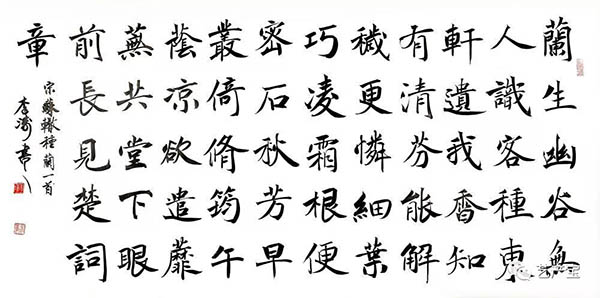 蘭生幽谷無
人識客種東
軒遺我香知
有清芬能解
穢更憐細葉
巧凌霜根便
密石秋芳早
叢倚脩筠午
蔭凉欲遣蘼
蕪共堂下眼
前長見楚詞
章
宋蘇轍種蘭一首
李濤書
艺产宝